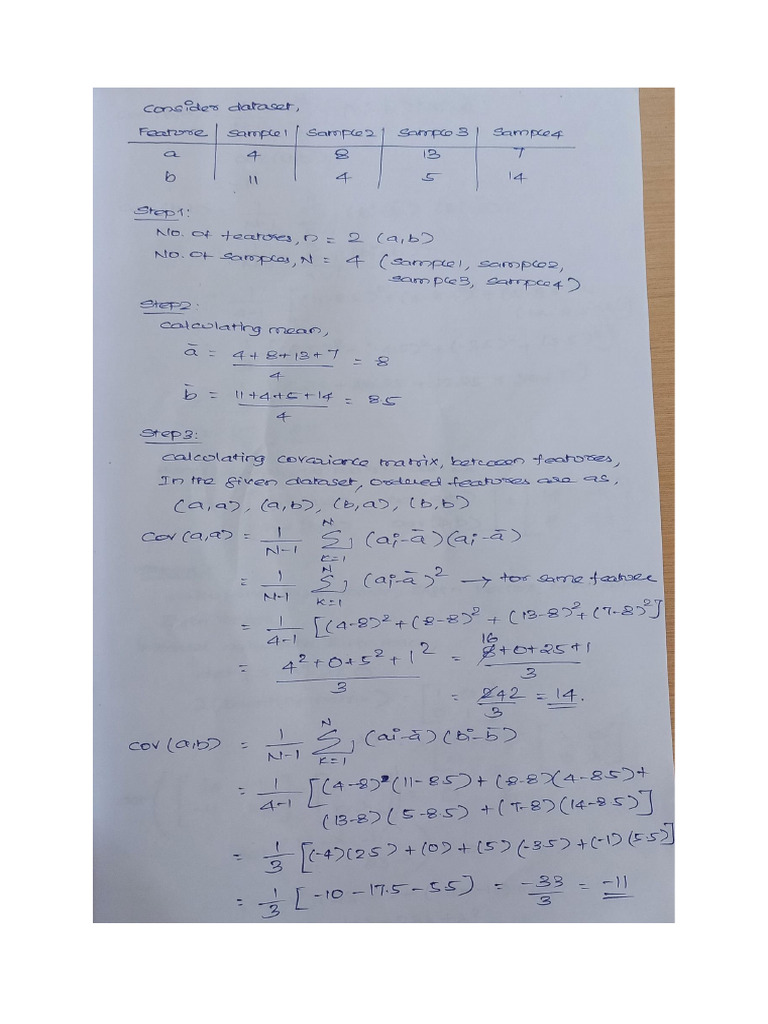 Consider dataset,
Feature | Sample1 | Sample2 | Sample3 | Sample4
a | 4 | 8 | 13 | 7
b | 11 | 4 | 5 | 14
Step1:
No. of features, n = 2 (a,b)
No. of samples, N = 4 (sample1, sample2,
sample3, sample4)
Step2:
Calculating mean,
ā = (4+8+13+7)/4 = 8
b̄ = (11+4+5+14)/4 = 8.5
Step3:
Calculating covariance matrix, between features,
In the given dataset, ordered features are as,
(a,a), (a,b), (b,a), (b,b)
cov(a,a) = 1/(N-1) Σ_{k=1}^{N} (ai-ā)(ai-ā)
= 1/(N-1) Σ_{k=1}^{N} (ai-ā)² → for same feature
= 1/(4-1) [(4-8)²+(8-8)²+(13-8)²+(7-8)²]
= (4²+0+5²+1²)/3 = (16+0+25+1)/3
= 42/3 = 14.
cov(a,b) = 1/(N-1) Σ_{k=1}^{N} (ai-ā)(bi-b̄)
= 1/(4-1) [(4-8)(11-8.5)+(8-8)(4-8.5)+
(13-8)(5-8.5)+(7-8)(14-8.5)]
= 1/3 [(-4)(2.5)+(0)+(5)(-3.5)+(-1)(5.5)]
= 1/3 [-10-17.5-5.5) = -33/3 = -11